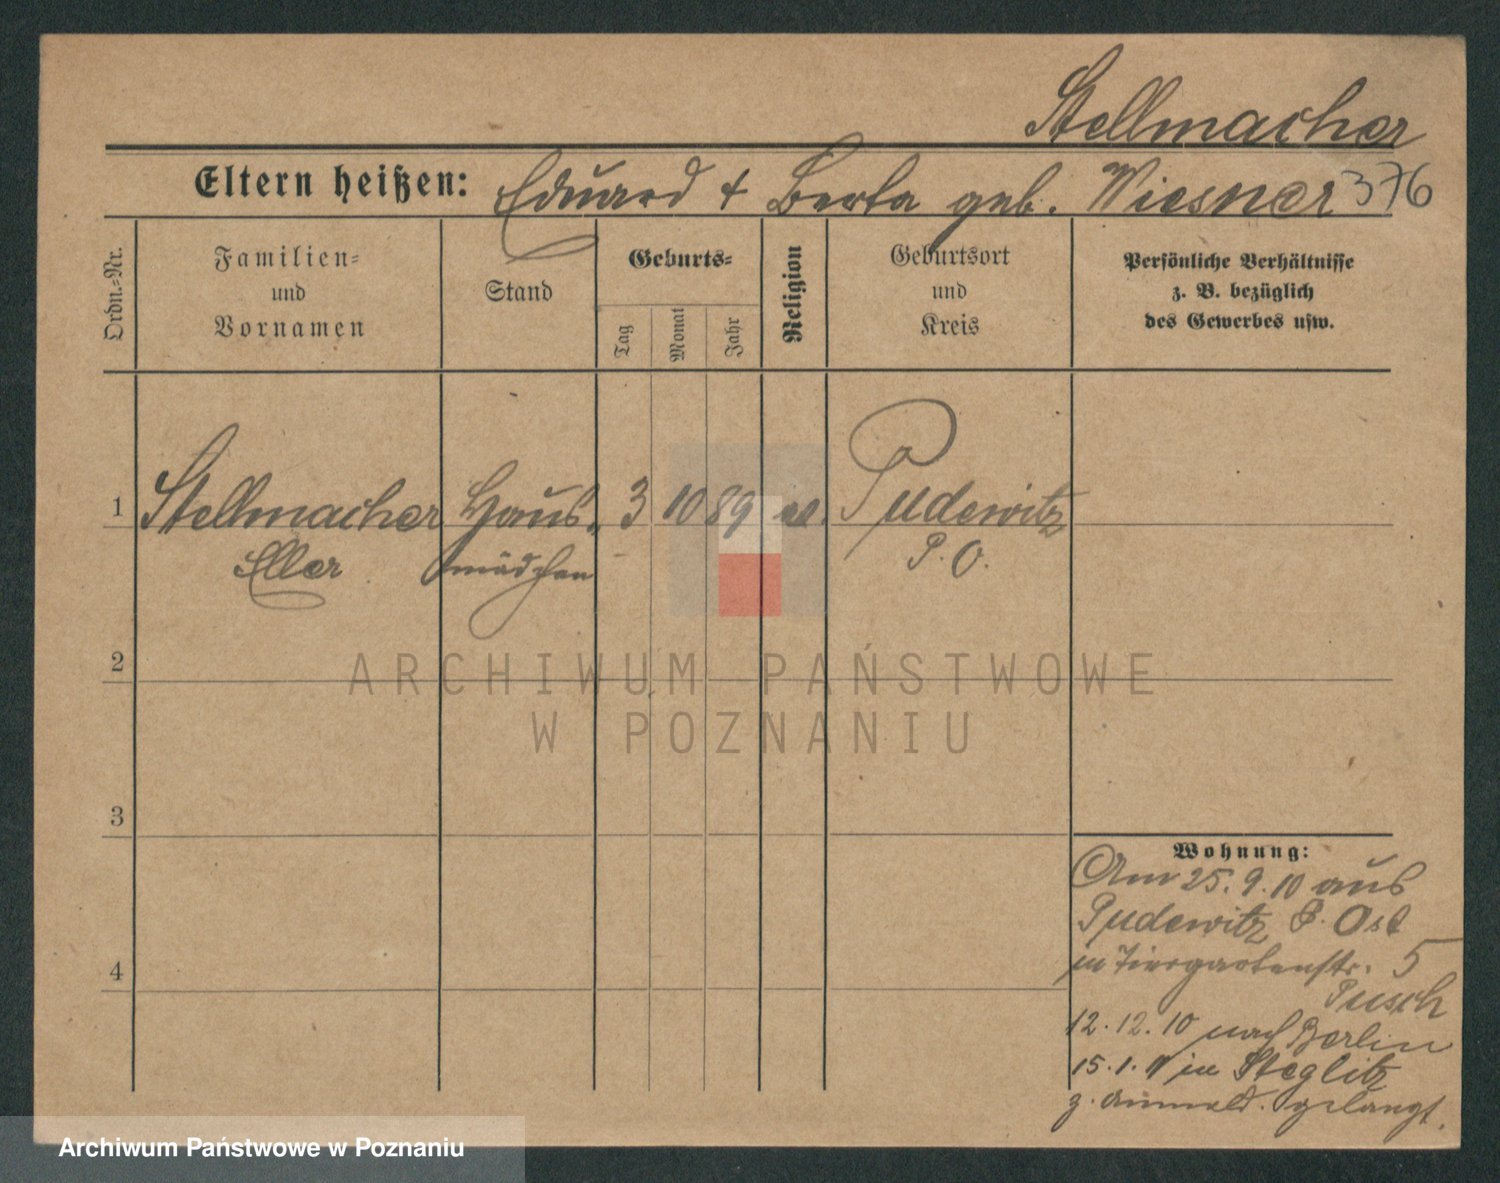 Stellmacher
Eltern heißen: Eduard + Berta geb. Wiesner 376
Ordn.-Nr.
Familien-
und
Vornamen
Stand
Geburts-
Tag
Monat
Jahr
Religion
Geburtsort
und
Kreis
Persönliche Verhältnisse
z. B. bezüglich
des Gewerbes usw.
1 Stellmacher Haus- 3 10 89 Pudewitz
mädchen P. O.
2
3
4
Wohnung:
Am 25. 9. 10 aus
Pudewitz P. Ost
in Tiergartenstr. 5
Pusch
12. 12. 10 nach Berlin
15. 1. 11 in Steglitz
z. Anmeld. gelangt.
ARCHIWUM PAŃSTWOWE
W POZNANIU
Archiwum Państwowe w Poznaniu